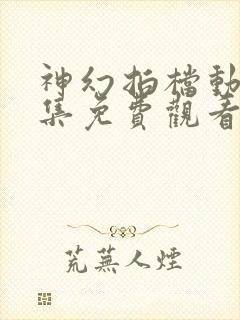 神幻拍檔動
集免費觀看
荒蕪人煙